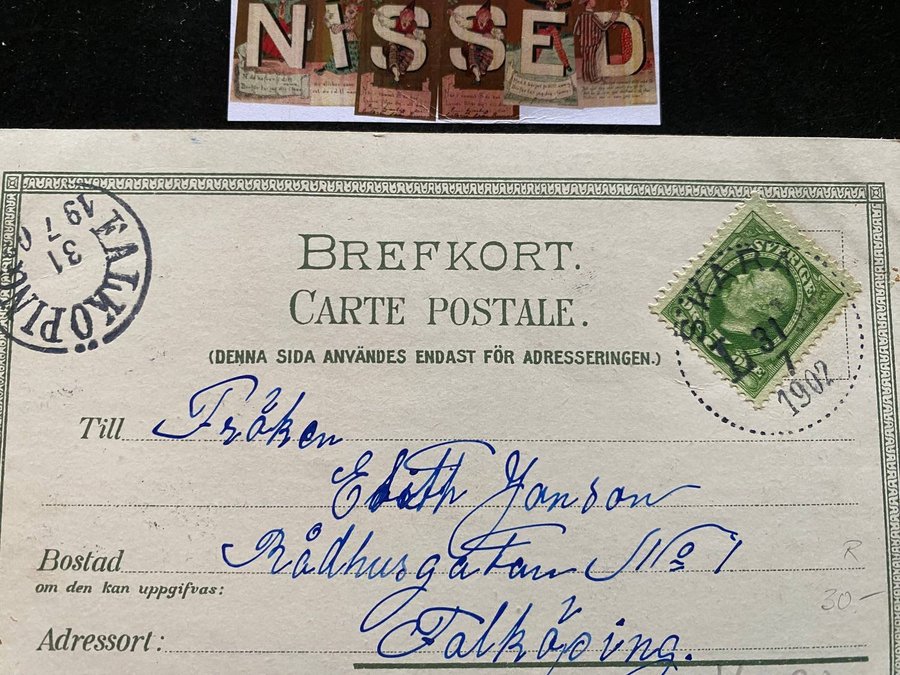 NISSED
BREFKORT.
CARTE POSTALE.
(DENNA SIDA ANVÄNDES ENDAST FÖR ADRESSERINGEN.)
FALKÖPING
31
7
19
SVERIGE
SKARA
31
7
1902
Till Fröken
Edith Jonson
Bostad Rådhusgatan No 1
om den kan uppgifvas:
R
30.-
Adressort: Falköping.